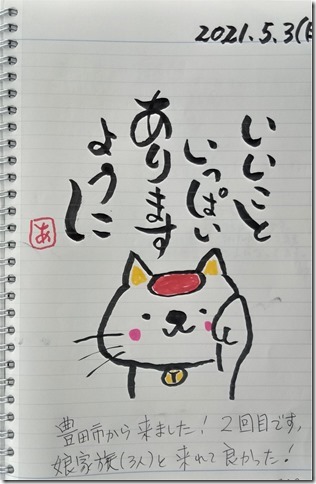 2021.5.3(
いいこと
いっぱい
あります
ように
あ
豊田市から来ました！2回目です。
娘家族(3人)と来れて良かった！